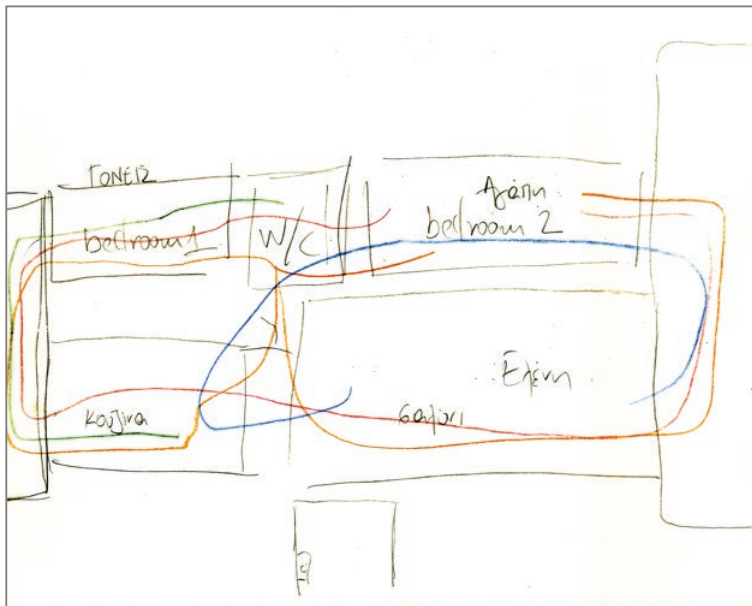 ΓΟΝΕΙΣ
bedroom 1
W/C
Αγάπη
bedroom 2
Ελένη
κουζινα
σαλονι